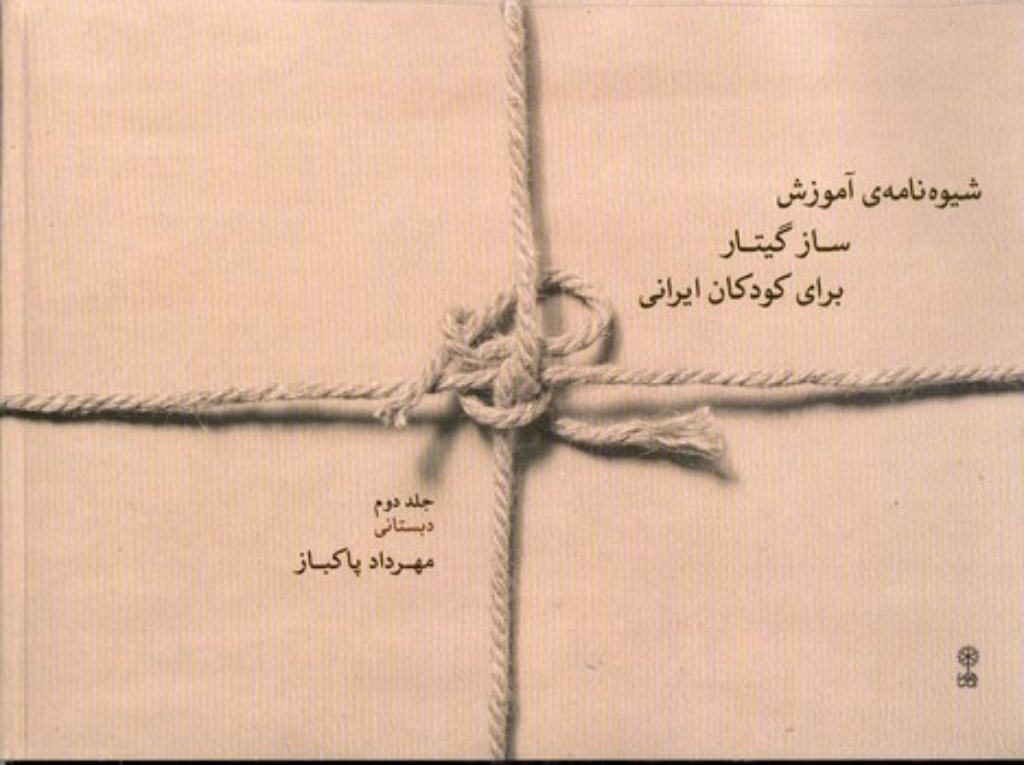 شیوه‌نامه‌ی آموزش
ساز گیتار
برای کودکان ایرانی
جلد دوم
دبستانی
مهرداد پاکباز